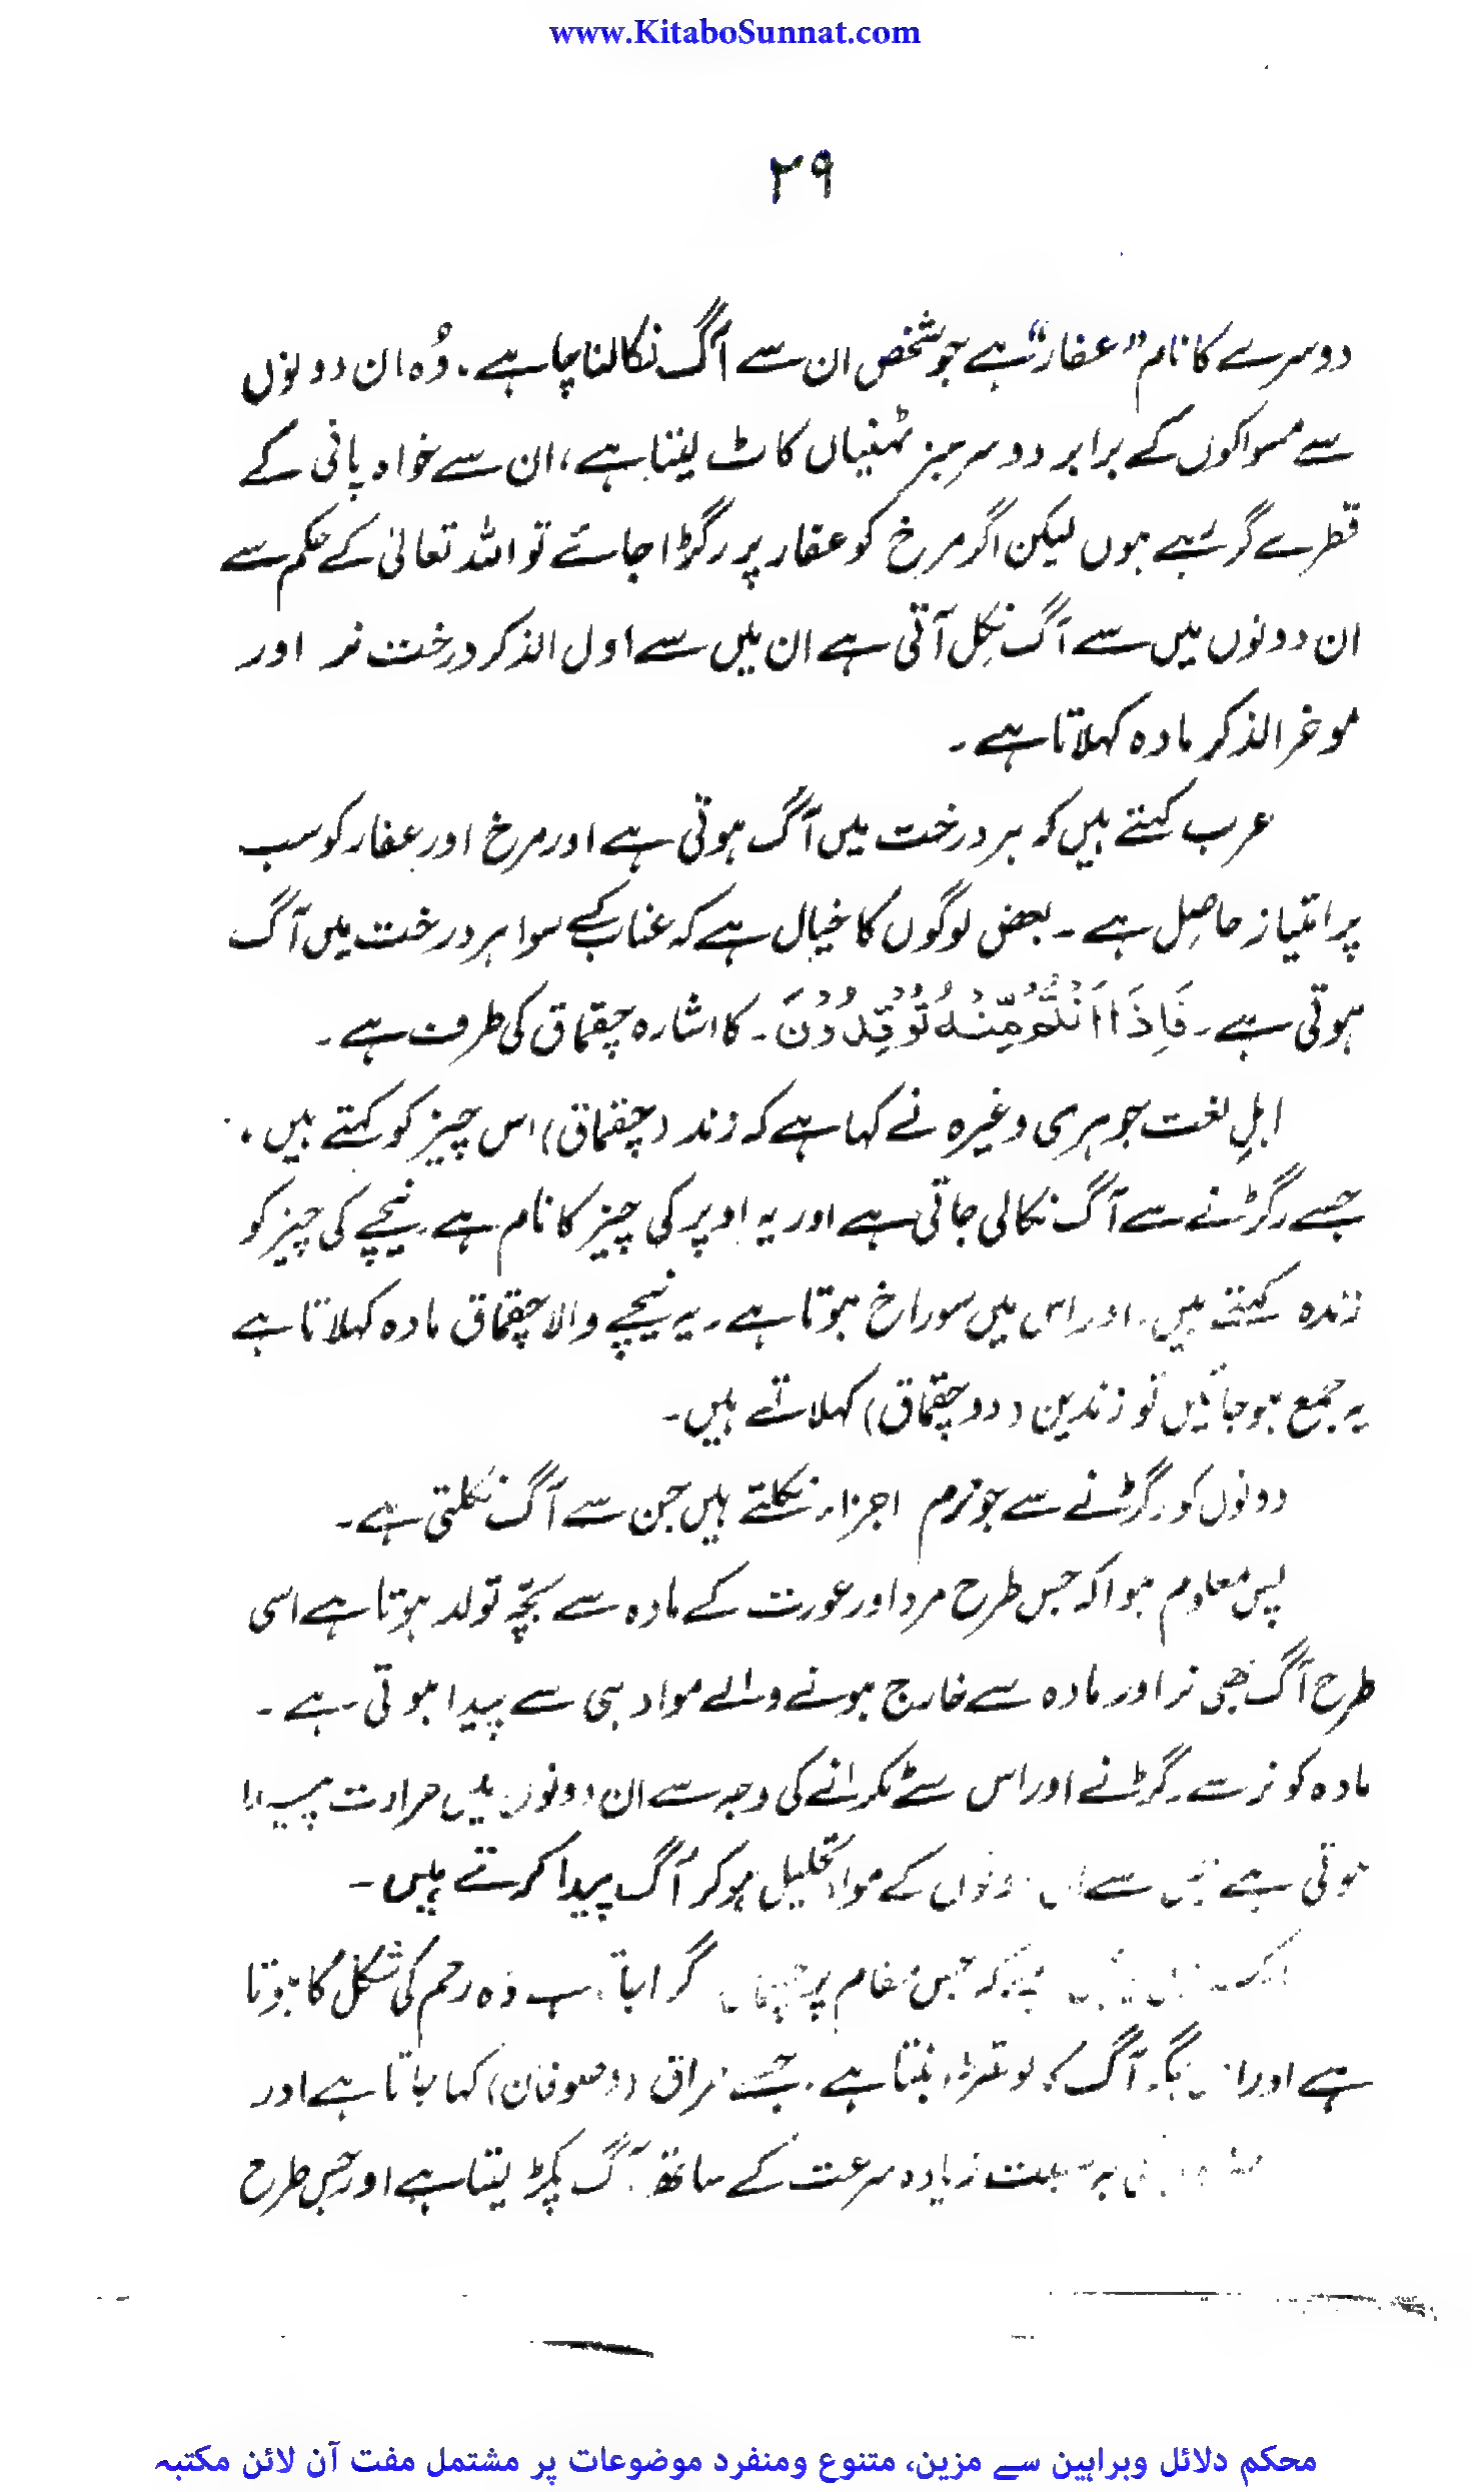 www.KitaboSunnat.com
۲۹
دوسرے کا نام ”عفار“ ہے جو شخص ان سے آگ نکالنا چاہے۔ وُہ ان دونوں
سے مسواکوں کے برابر دو سرسبز ٹہنیاں کاٹ لیتا ہے، ان سے خواہ پانی کے
قطرے گر رہے ہوں لیکن اگر مرخ کو عفار پر رگڑا جائے تو اللہ تعالیٰ کے حکم سے
ان دونوں میں سے آگ نکل آتی ہے ان میں سے اول الذکر درخت نر اور
موخر الذکر مادہ کہلاتا ہے۔
عرب کہتے ہیں کہ ہر درخت میں آگ ہوتی ہے اور مرخ اور عفار کو سب
پر امتیاز حاصِل ہے۔ بعض لوگوں کا خیال ہے کہ عناب کے سوا ہر درخت میں آگ
ہوتی ہے۔ فَاِذَا اَنْتُمْ مِّنْهُ تُوْقِدُوْنَ۔ کا اشارہ چقماق کی طرف ہے۔
اہلِ لغت جوہری وغیرہ نے کہا ہے کہ زند (چقماق) اس چیز کو کہتے ہیں،
جسے رگڑنے سے آگ نکالی جاتی ہے اور یہ اوپر کی چیز کا نام ہے۔ نیچے کی چیز کو
زندہ کہتے ہیں۔ اور اس میں سوراخ ہوتا ہے۔ یہ نیچے والا چقماق مادہ کہلاتا ہے
یہ جمع ہو جائیں تو زندین (دو چقماق) کہلاتے ہیں۔
دونوں کو رگڑنے سے جو نرم اجزاء نکلتے ہیں جن سے آگ نکلتی ہے۔
پس معلوم ہوا کہ جس طرح مرد اور عورت کے مادہ سے بچّہ تولد ہوتا ہے اسی
طرح آگ بھی نر اور مادہ سے خارج ہونے والے مواد ہی سے پیدا ہوتی ہے۔
مادہ کو نر سے رگڑنے اور اس سے ٹکرانے کی وجہ سے ان دونوں میں حرارت پیدا
ہوتی ہے جس سے ان دونوں کے مواد تحلیل ہو کر آگ پیدا کرتے ہیں۔
کہ جس مقام پر وُہ رحم کی شکل کا ہوتا
ہے اور آگ کا لوتھڑا بنتا ہے۔ جسے حراق (دوصوفان) کہا جاتا ہے اور
بہ نسبت زیادہ سرعت کے ساتھ آگ پکڑ لیتا ہے اور جس طرح
محکم دلائل وبراہین سے مزین، متنوع ومنفرد موضوعات پر مشتمل مفت آن لائن مکتبہ